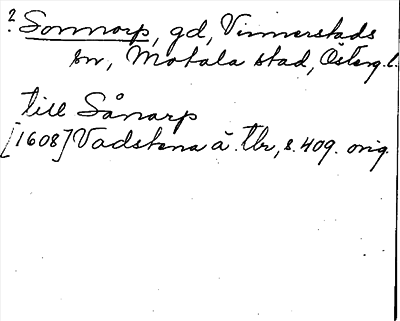 ? Sonnorp, gd, Vinnerstads
sn, Motala stad, Österg. l.
till Sånarp
[1608] Vadstena ä. tbr, s. 409. orig.